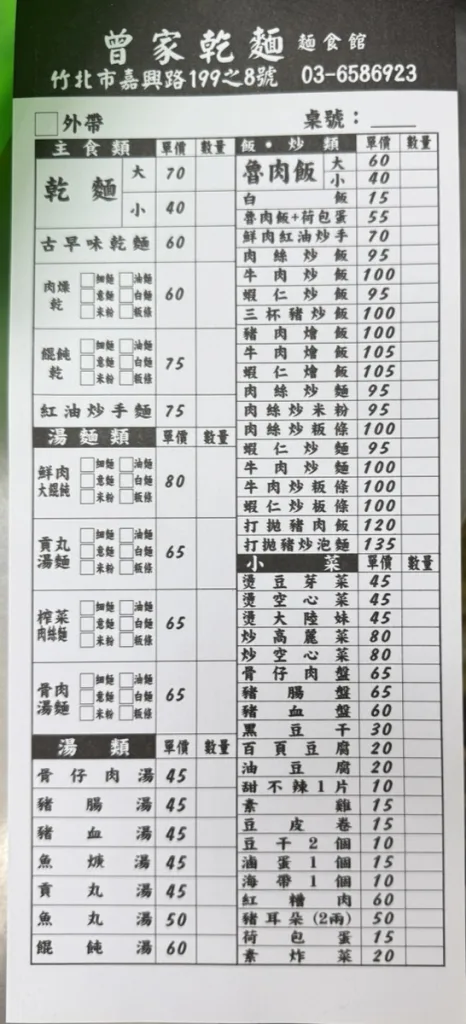 曾家乾麵 麵食館
竹北市嘉興路199之8號 03-6586923
外帶 桌號：
主食類 單價 數量
乾麵 大 70
小 40
古早味乾麵 60
肉燥乾 細麵 油麵 意麵 白麵 米粉 粄條 60
餛飩乾 細麵 油麵 意麵 白麵 米粉 粄條 75
紅油炒手麵 75
湯麵類 單價 數量
鮮肉大餛飩 細麵 油麵 意麵 白麵 米粉 粄條 80
貢丸湯麵 細麵 油麵 意麵 白麵 米粉 粄條 65
榨菜肉絲麵 細麵 油麵 意麵 白麵 米粉 粄條 65
骨肉湯麵 細麵 油麵 意麵 白麵 米粉 粄條 65
湯類 單價 數量
骨仔肉湯 45
豬腸湯 45
豬血湯 45
魚焿湯 45
貢丸湯 45
魚丸湯 50
餛飩湯 60
飯·炒類 單價 數量
魯肉飯 大 60
小 40
白飯 15
魯肉飯+荷包蛋 55
鮮肉紅油炒手 70
肉絲炒飯 95
牛肉炒飯 100
蝦仁炒飯 95
三杯豬炒飯 100
豬肉燴飯 100
牛肉燴飯 105
蝦仁燴飯 105
肉絲炒麵 95
肉絲炒米粉 95
肉絲炒粄條 100
蝦仁炒麵 95
牛肉炒麵 100
牛肉炒粄條 100
蝦仁炒粄條 100
打拋豬肉飯 120
打拋豬炒泡麵 135
小菜 單價 數量
燙豆芽菜 45
燙空心菜 45
燙大陸妹 45
炒高麗菜 80
炒空心菜 80
骨仔肉盤 65
豬腸盤 65
豬血盤 60
黑豆干 30
百頁豆腐 20
油豆腐 20
甜不辣1片 10
素雞 15
豆皮卷 15
豆干2個 10
滷蛋1個 15
海帶1個 10
紅糟肉 60
豬耳朵(2兩) 50
荷包蛋 15
素炸菜 20